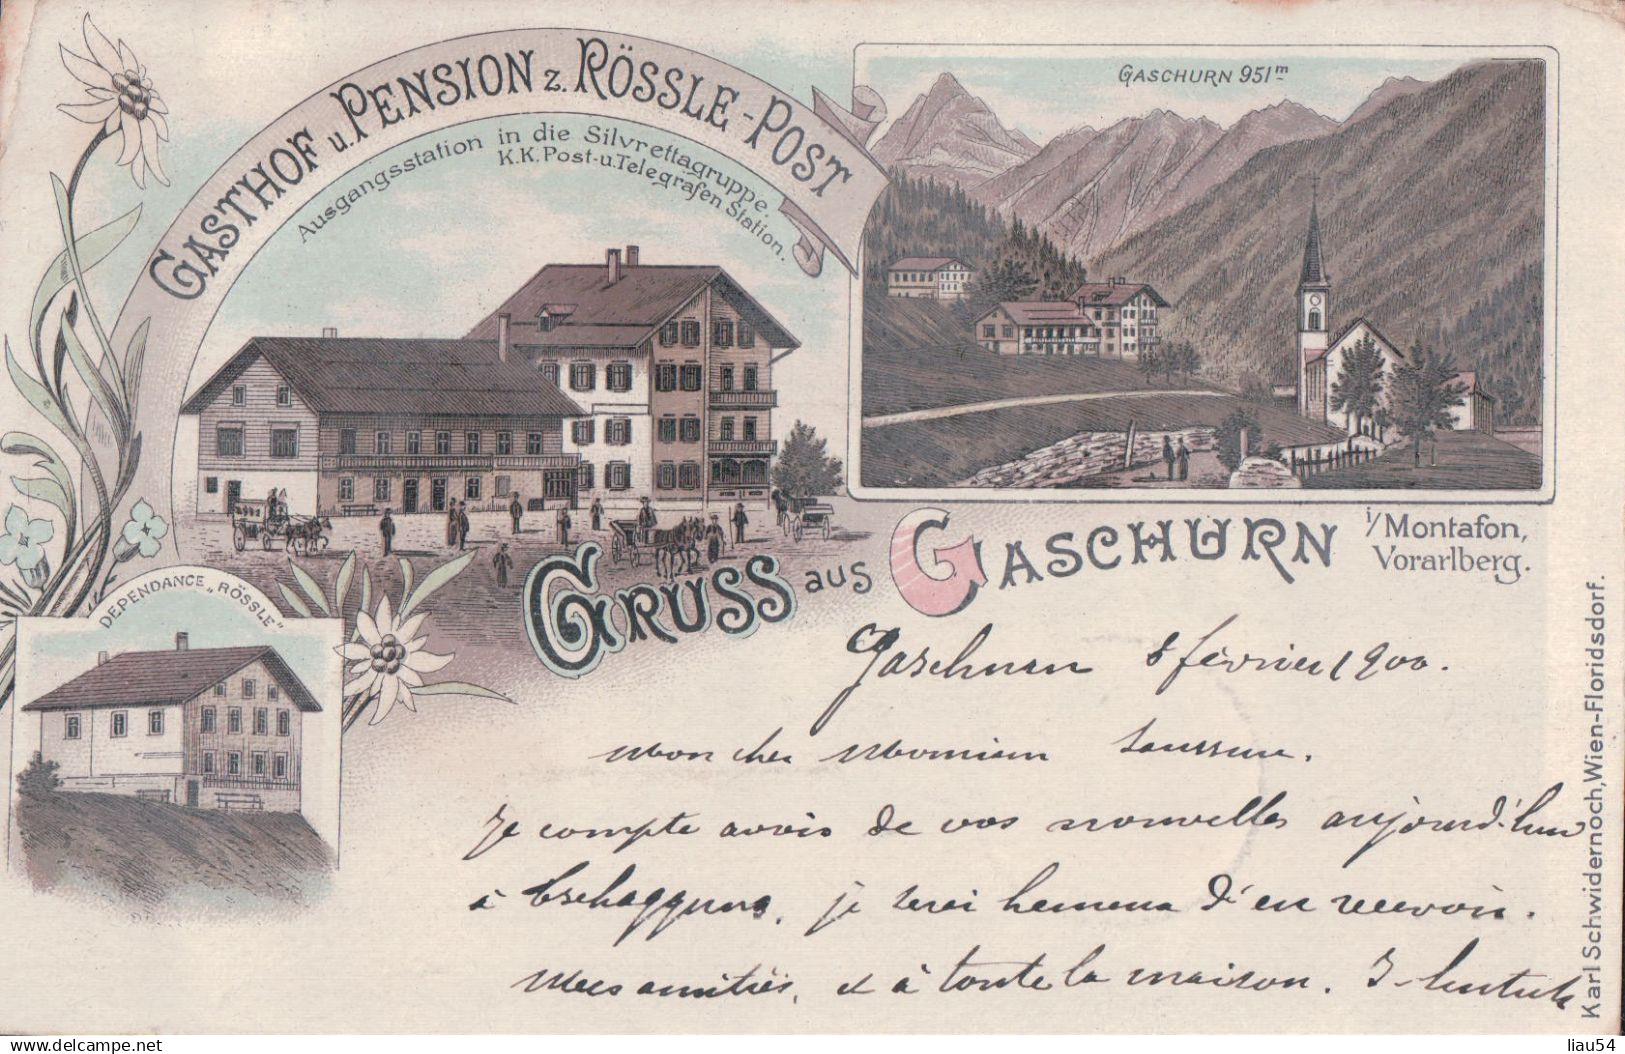 GASTHOF u. PENSION z. RÖSSLE-POST
Ausgangsstation in die Silvrettagruppe.
K.K. Post- u. Telegrafen Station.
GASCHURN 951m
DEPENDANCE „RÖSSLE"
GRUSS aus GASCHURN
i/Montafon,
Vorarlberg.
Gaschurn 8 février 1900.
Mon cher
Je compte avoir de vos nouvelles aujourd'hui
à Tschagguns, je serai heureux d'en recevoir.
Mes amitiés, et à toute la maison.
Karl Schwidernoch, Wien-Floridsdorf.
delcampe.net
liau54